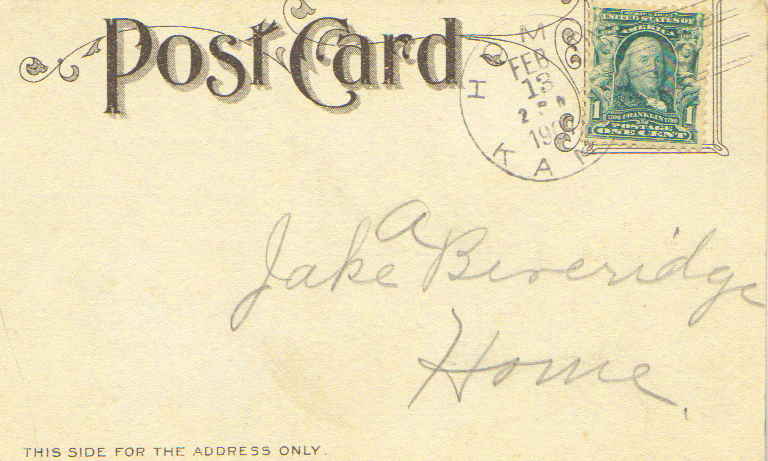 Post Card
UNITED STATES OF
AMERICA
1 1706 FRANKLIN 1790 1
POSTAGE
ONE CENT
FEB
13
2 P M
KAN
Jake A Beveridge
Home.
THIS SIDE FOR THE ADDRESS ONLY.